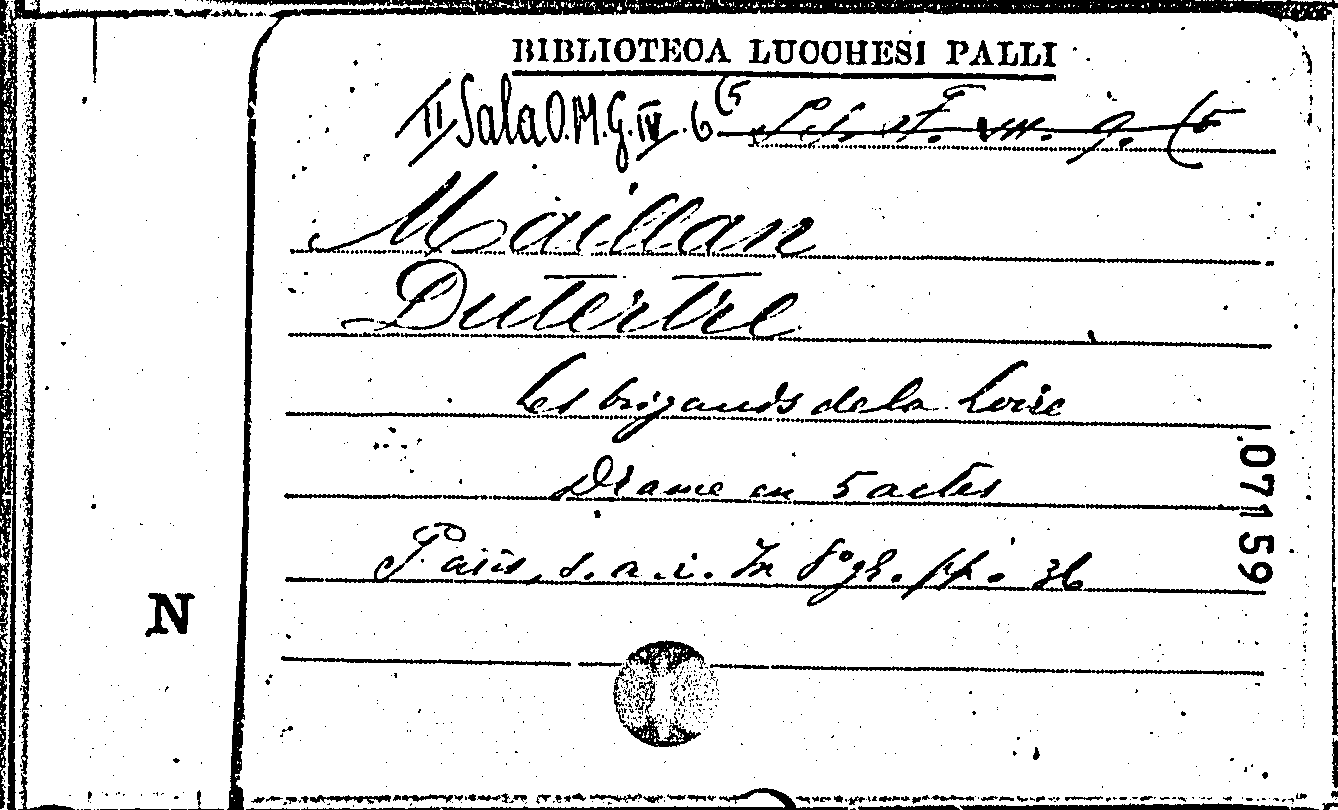 BIBLIOTECA LUCCHESI PALLI
II Sala O.M.G.IV.6(5
Maillan
Dutertre
Les brigands de la Loire
Drame en 5 actes
Paris, s. a. i. In 8° gr. pp. 36
07159
N